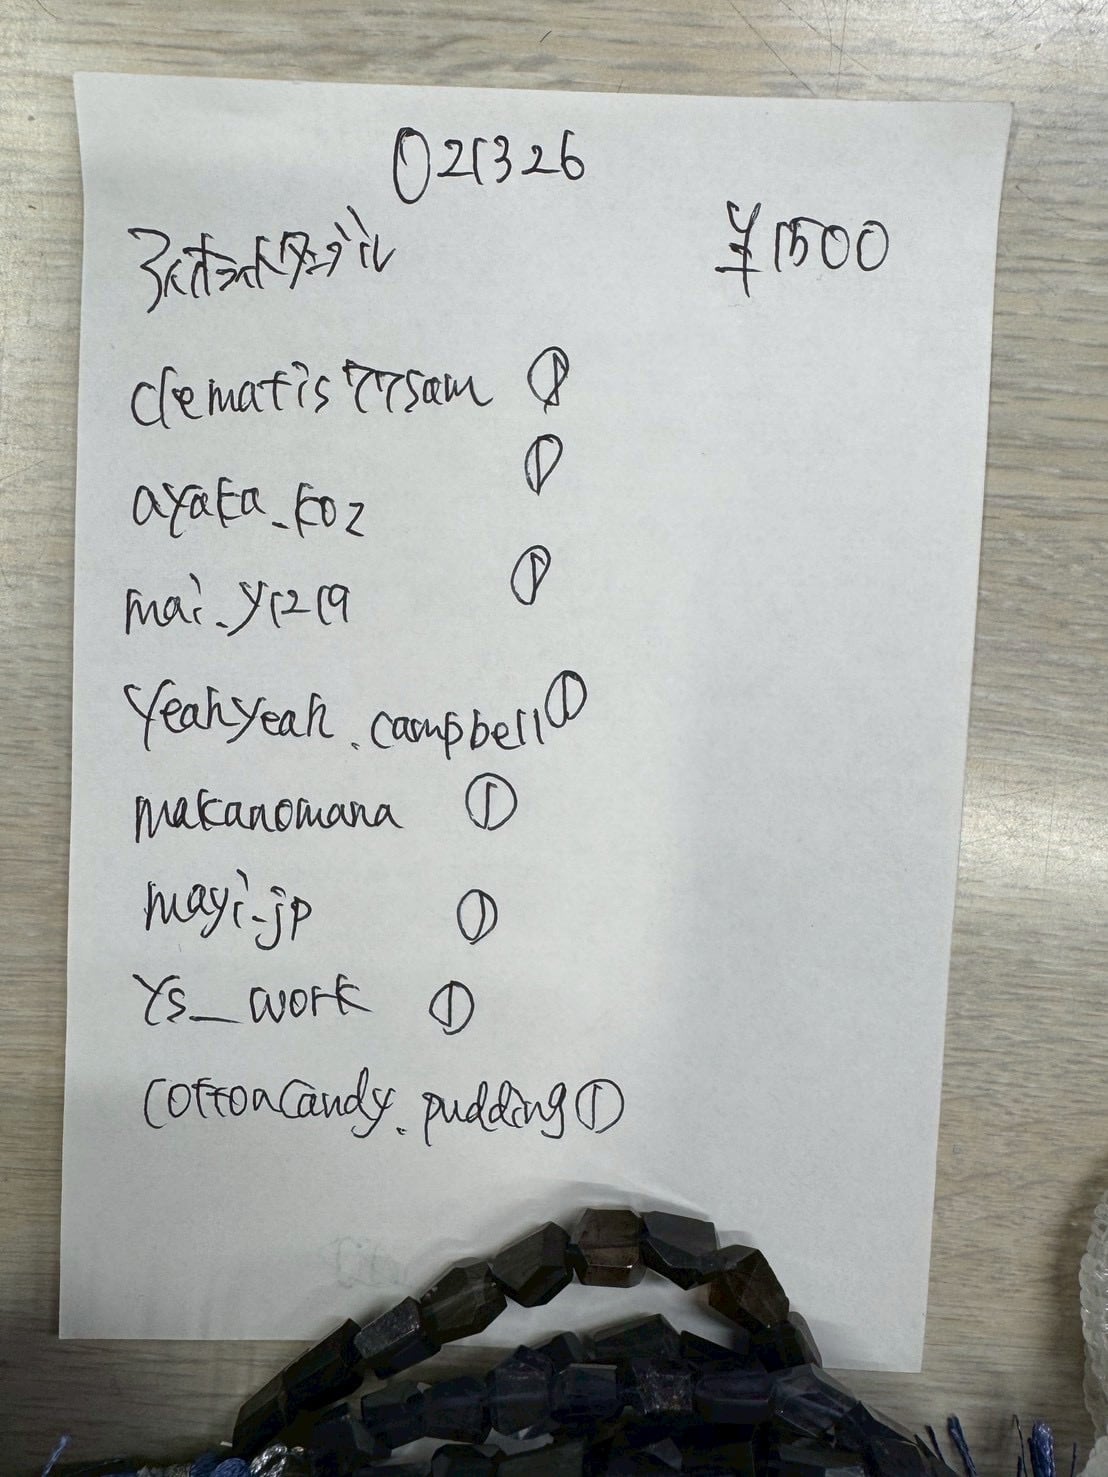 021326
¥1500
clematis77sam ①
ayaka_koz ①
mai_y1219 ①
yeahyeah.campbell ①
makanomana ①
mayi_jp ①
ys__work ①
cottoncandy.pudding ①